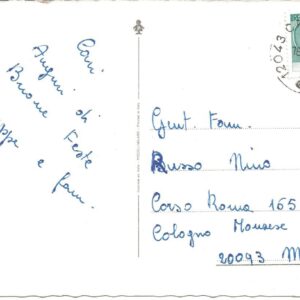 Cari
Auguri di
Buone Feste
e fam.
12043
Gent. Fam.
Russo Nino
Corso Roma 165
Cologno Monzese
20093 M